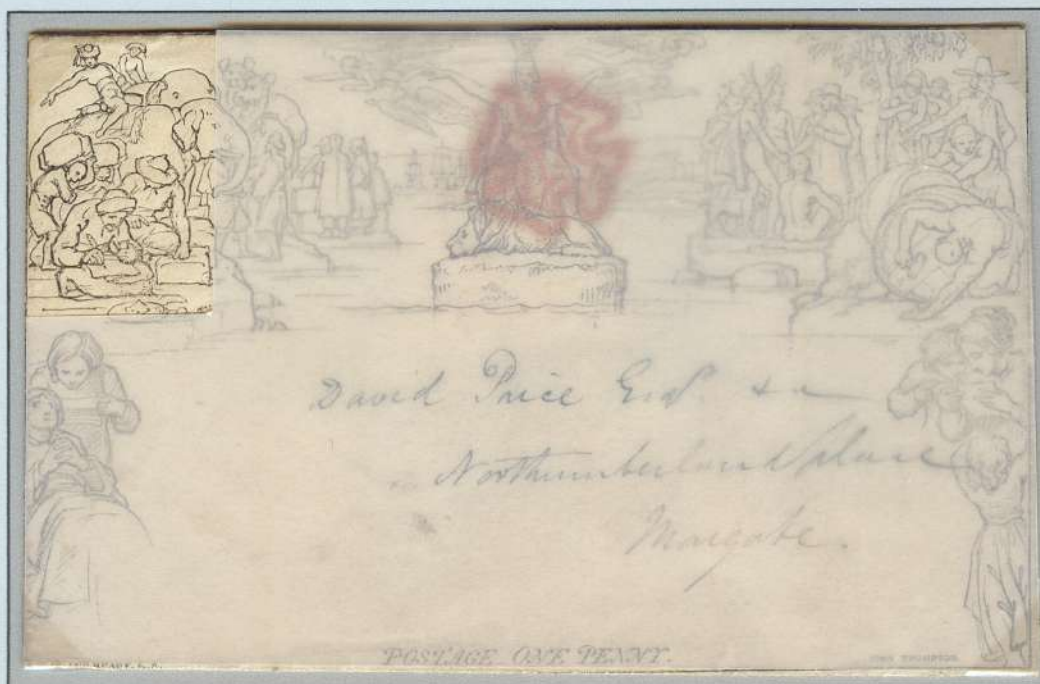 David Price Esqr. &c
Northumberland Place
Margate.
POSTAGE ONE PENNY.
JOHN THOMPSON